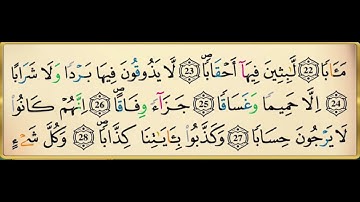 مَـَٔابًا ۝22 لَّٰبِثِينَ فِيهَآ أَحْقَابًا ۝23 لَّا يَذُوقُونَ فِيهَا بَرْدًا وَلَا شَرَابًا
۝24 إِلَّا حَمِيمًا وَغَسَاقًا ۝25 جَزَآءً وِفَاقًا ۝26 إِنَّهُمْ كَانُوا۟
لَا يَرْجُونَ حِسَابًا ۝27 وَكَذَّبُوا۟ بِـَٔايَٰتِنَا كِذَّابًا ۝28 وَكُلَّ شَىْءٍ